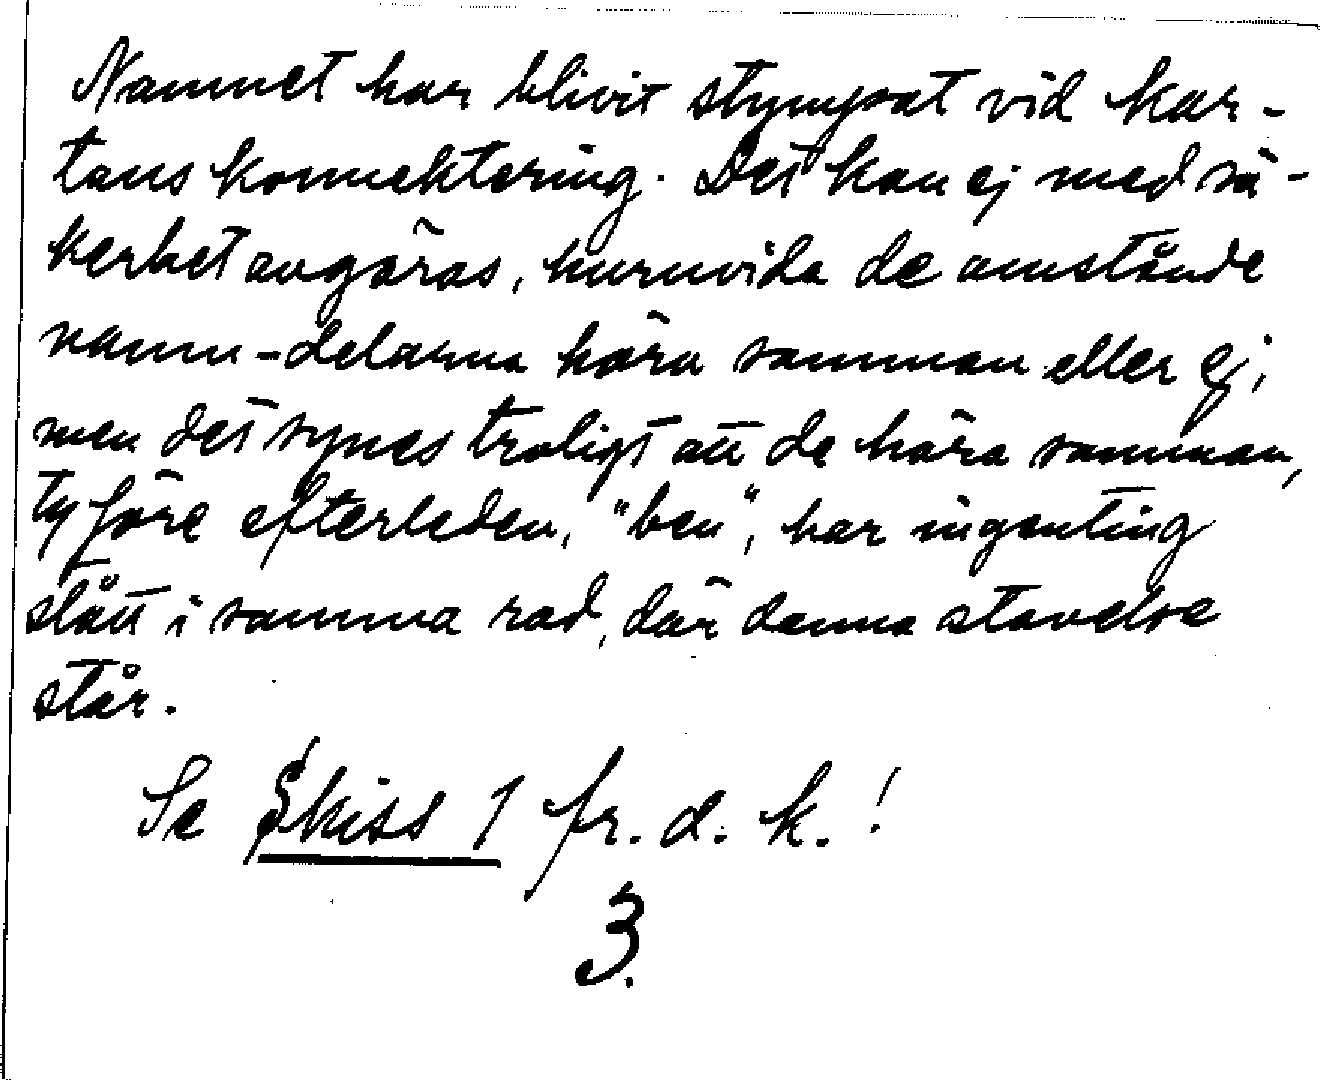 Namnet har blivit stympat vid kar-
tans konnektering. Det kan ej med sä-
kerhet avgöras, huruvida de omstånde
namn-delarna höra samman eller ej,
men det synes troligt att de höra samman,
ty före efterleden, "ben", har ingenting
stått i samma rad, där denna stavelse
står.
Se Skiss 1 fr. d. k.!
3.